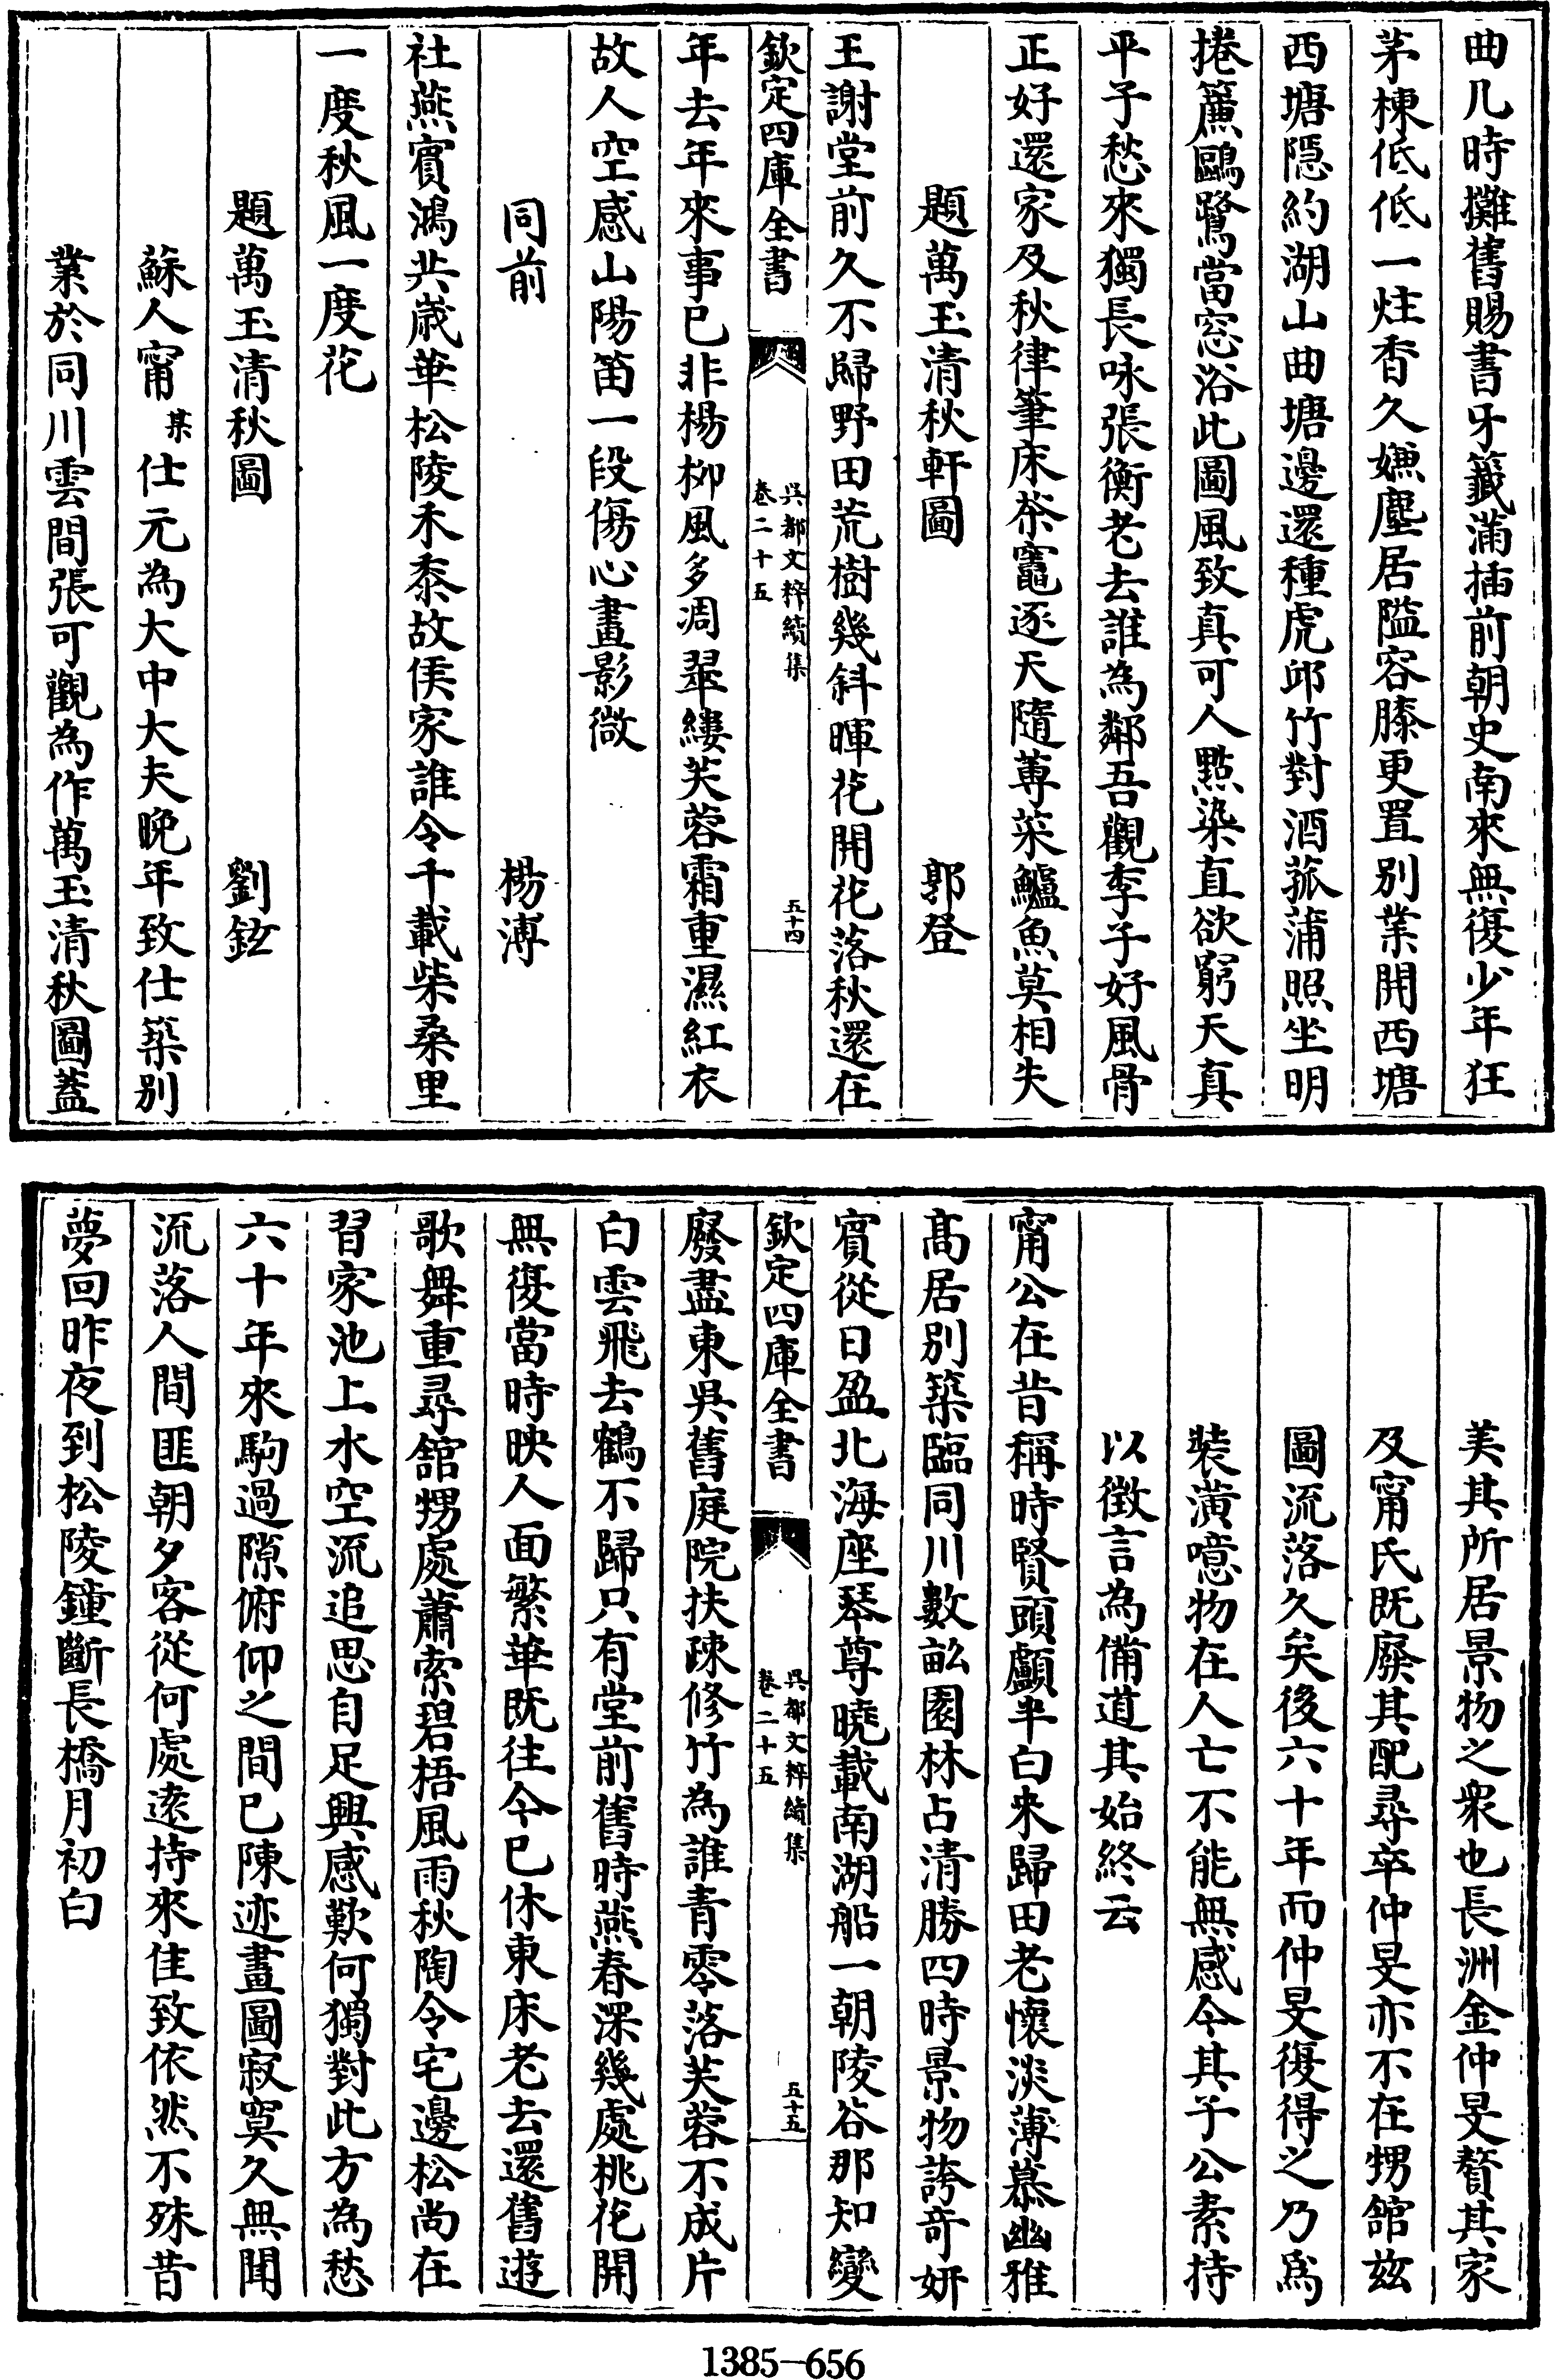 曲几時攤舊賜書牙籤滿插前朝史南來無復少年狂
茅棟低低一炷香久嫌塵居隘容膝更置别業開西塘
西塘隱約湖山曲塘邊還種虎邱竹對酒菰蒲照坐明
捲簾鷗鷺當窓浴此圖風致真可人點染直欲窮天真
平子愁來獨長咏張衡老去誰為鄰吾觀李子好風骨
正好還家及秋律筆床茶竈逐天隨蓴菜鱸魚莫相失
題萬玉清秋軒圖 郭登
王謝堂前久不歸野田荒樹幾斜暉花開花落秋還在
欽定四庫全書 吳都文粹續集 卷二十五 五十四
年去年來事已非楊柳風多凋翠縷芙蓉霜重濕紅衣
故人空感山陽笛一段傷心畫影微
同前 楊溥
社燕賓鴻共歲華松陵禾黍故侯家誰令千載柴桑里
一度秋風一度花
題萬玉清秋圖 劉鉉
蘇人甯某仕元為大中大夫晚年致仕築别
業於同川雲間張可觀為作萬玉清秋圖蓋
美其所居景物之衆也長洲金仲旻贅其家
及甯氏既廢其配尋卒仲旻亦不在甥館兹
圖流落久矣後六十年而仲旻復得之乃為
裝潢噫物在人亡不能無感今其子公素持
以徴言為備道其始終云
甯公在昔稱時賢頭顱半白來歸田老懷淡薄慕幽雅
髙居别築臨同川數畝園林占清勝四時景物誇奇妍
賓從日盈北海座琴尊曉載南湖船一朝陵谷那知變
欽定四庫全書 吳都文粹續集 卷二十五 五十五
廢盡東吳舊庭院扶疎修竹為誰青零落芙蓉不成片
白雲飛去鶴不歸只有堂前舊時燕春深幾處桃花開
無復當時映人面繁華既往今已休東床老去還舊遊
歌舞重尋舘甥處蕭索碧梧風雨秋陶令宅邊松尚在
習家池上水空流追思自足興感歎何獨對此方為愁
六十年來駒過隙俯仰之間已陳迹畫圖寂寞久無聞
流落人間匪朝夕客從何處遠持來佳致依然不殊昔
夢回昨夜到松陵鐘斷長橋月初白
1385-656